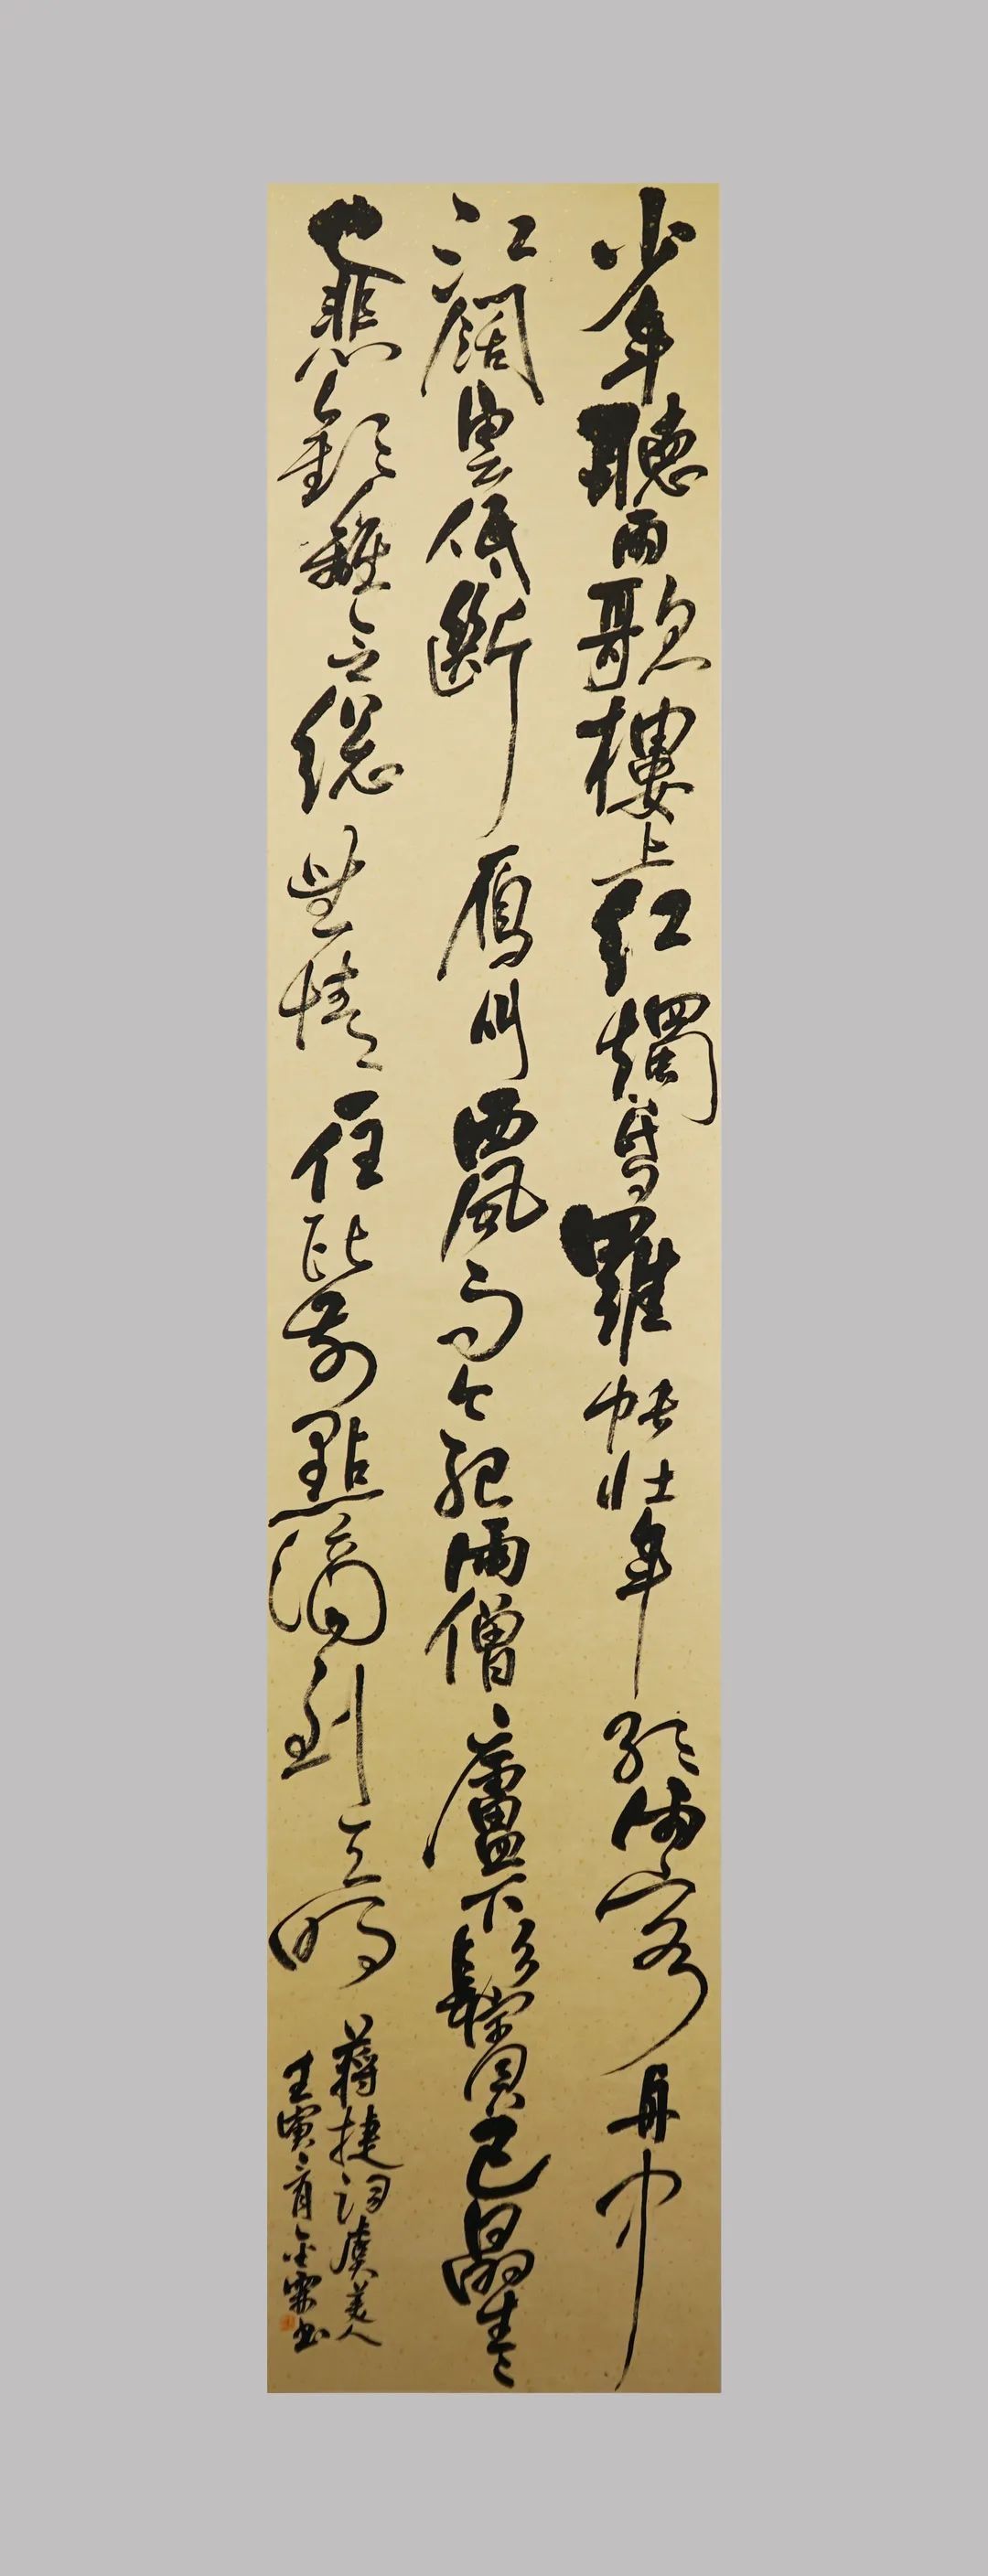 少年聽雨歌樓上紅燭昏羅帳壯年聽雨客舟中
江闊雲低斷鴈叫西風而今聽雨僧廬下鬢已曐々
也悲歡離合總無情一任階前點滴到天明
蔣捷詞虞美人
壬寅金霖書